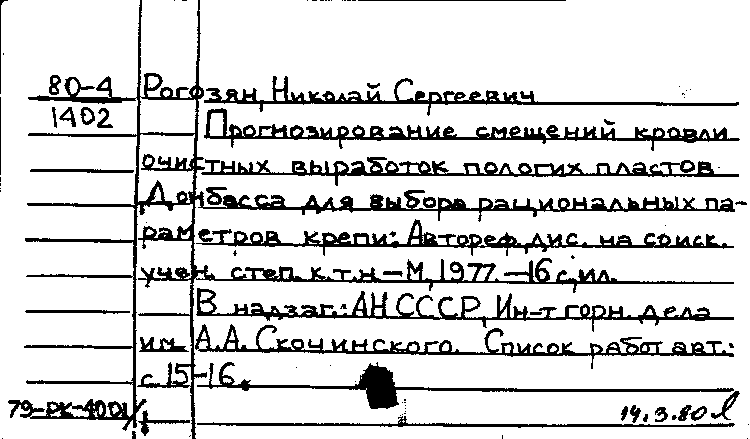 80-4 Рогозян, Николай Сергеевич
1402 Прогнозирование смещений кровли
очистных выработок пологих пластов
Донбасса для выбора рациональных па-
раметров крепи: Автореф. дис. на соиск.
учен. степ. к.т.н. – М, 1977. – 16 с, ил.
В надзаг.: АН СССР, Ин-т горн. дела
им. А.А. Скочинского. Список работ авт.:
с 15-16.
14.3.80